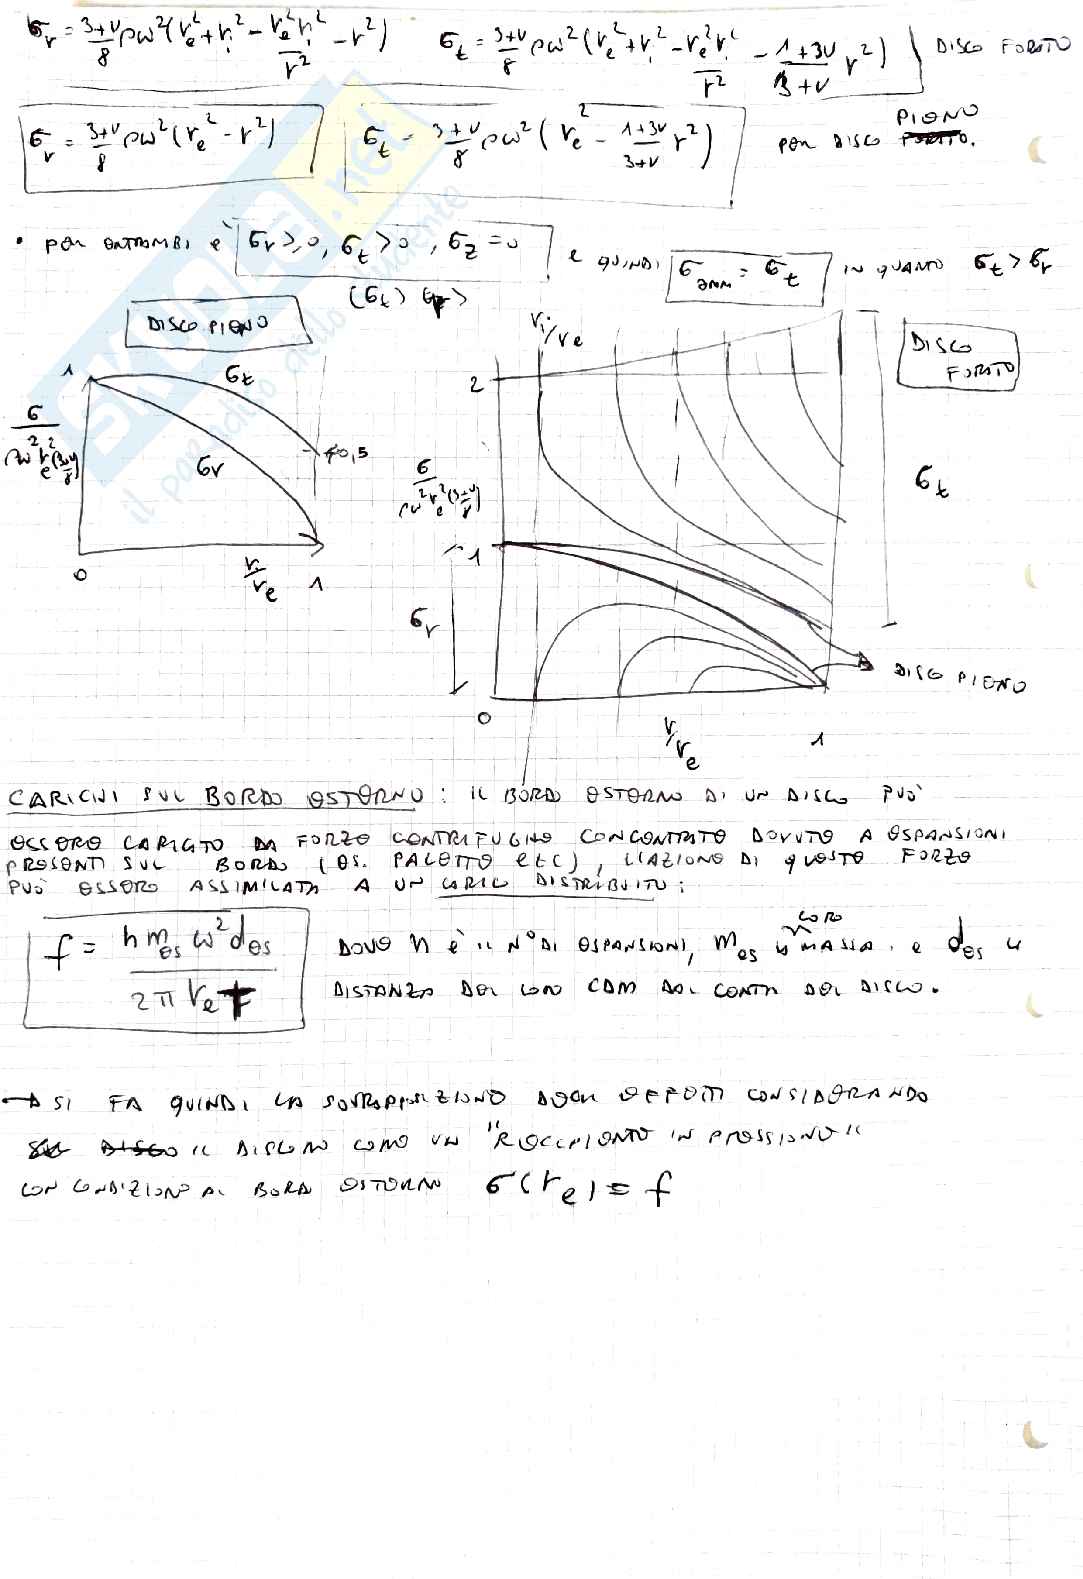 σr = 3+ν/8 ρω²(re² + ri² − re²ri²/r² − r²)   σt = 3+ν/8 ρω²(re² + ri² − re²ri²/r² − 1+3ν/3+ν r²)   DISCO FORATO
PIENO
σr = 3+ν/8 ρω²(re² − r²)   σt = 3+ν/8 ρω²(re² − 1+3ν/3+ν r²)   PER DISCO FORATO.
• PER ENTRAMBI È σr ≥ 0, σt > 0, σz = 0 E QUINDI σamm = σt IN QUANTO σt > σr
(σt > σr >
DISCO PIENO
ri/re
DISCO FORATO
1
σt
2
σ/ρω²re²(3+ν/8)
0,5
σr
σ/ρω²re²(3+ν/8)
σt
1
0
ri/re
1
σr
DISCO PIENO
0
r/re
1
CARICHI SUL BORDO ESTERNO: IL BORDO ESTERNO DI UN DISCO PUÒ
ESSERE CARICATO DA FORZE CENTRIFUGHE CONCENTRATE DOVUTE A ESPANSIONI
PRESENTI SUL BORDO (ES. PALETTE etc), L'AZIONE DI QUESTE FORZE
PUÒ ESSERE ASSIMILATA A UN CARICO DISTRIBUITO:
f = n mes ω² des / 2π re t
DOVE n È IL N° DI ESPANSIONI, mes LA LORO MASSA e des LA
DISTANZA DEL LORO CDM DAL CENTRO DEL DISCO.
→ SI FA QUINDI LA SOVRAPPOSIZIONE DEGLI EFFETTI CONSIDERANDO
DISCO IL DISCO COME UN "RECIPIENTE IN PRESSIONE"
CON CONDIZIONE AL BORDO ESTERNO σ(re) = f
SKUOLA.net
il paradiso dello studente